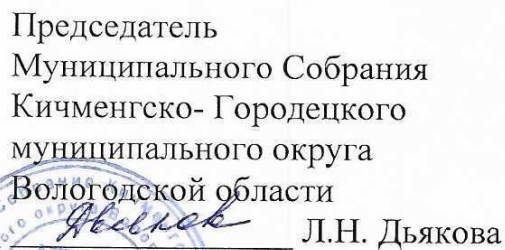 Председатель
Муниципального Собрания
Кичменгско- Городецкого
муниципального округа
Вологодской области
Л.Н. Дьякова